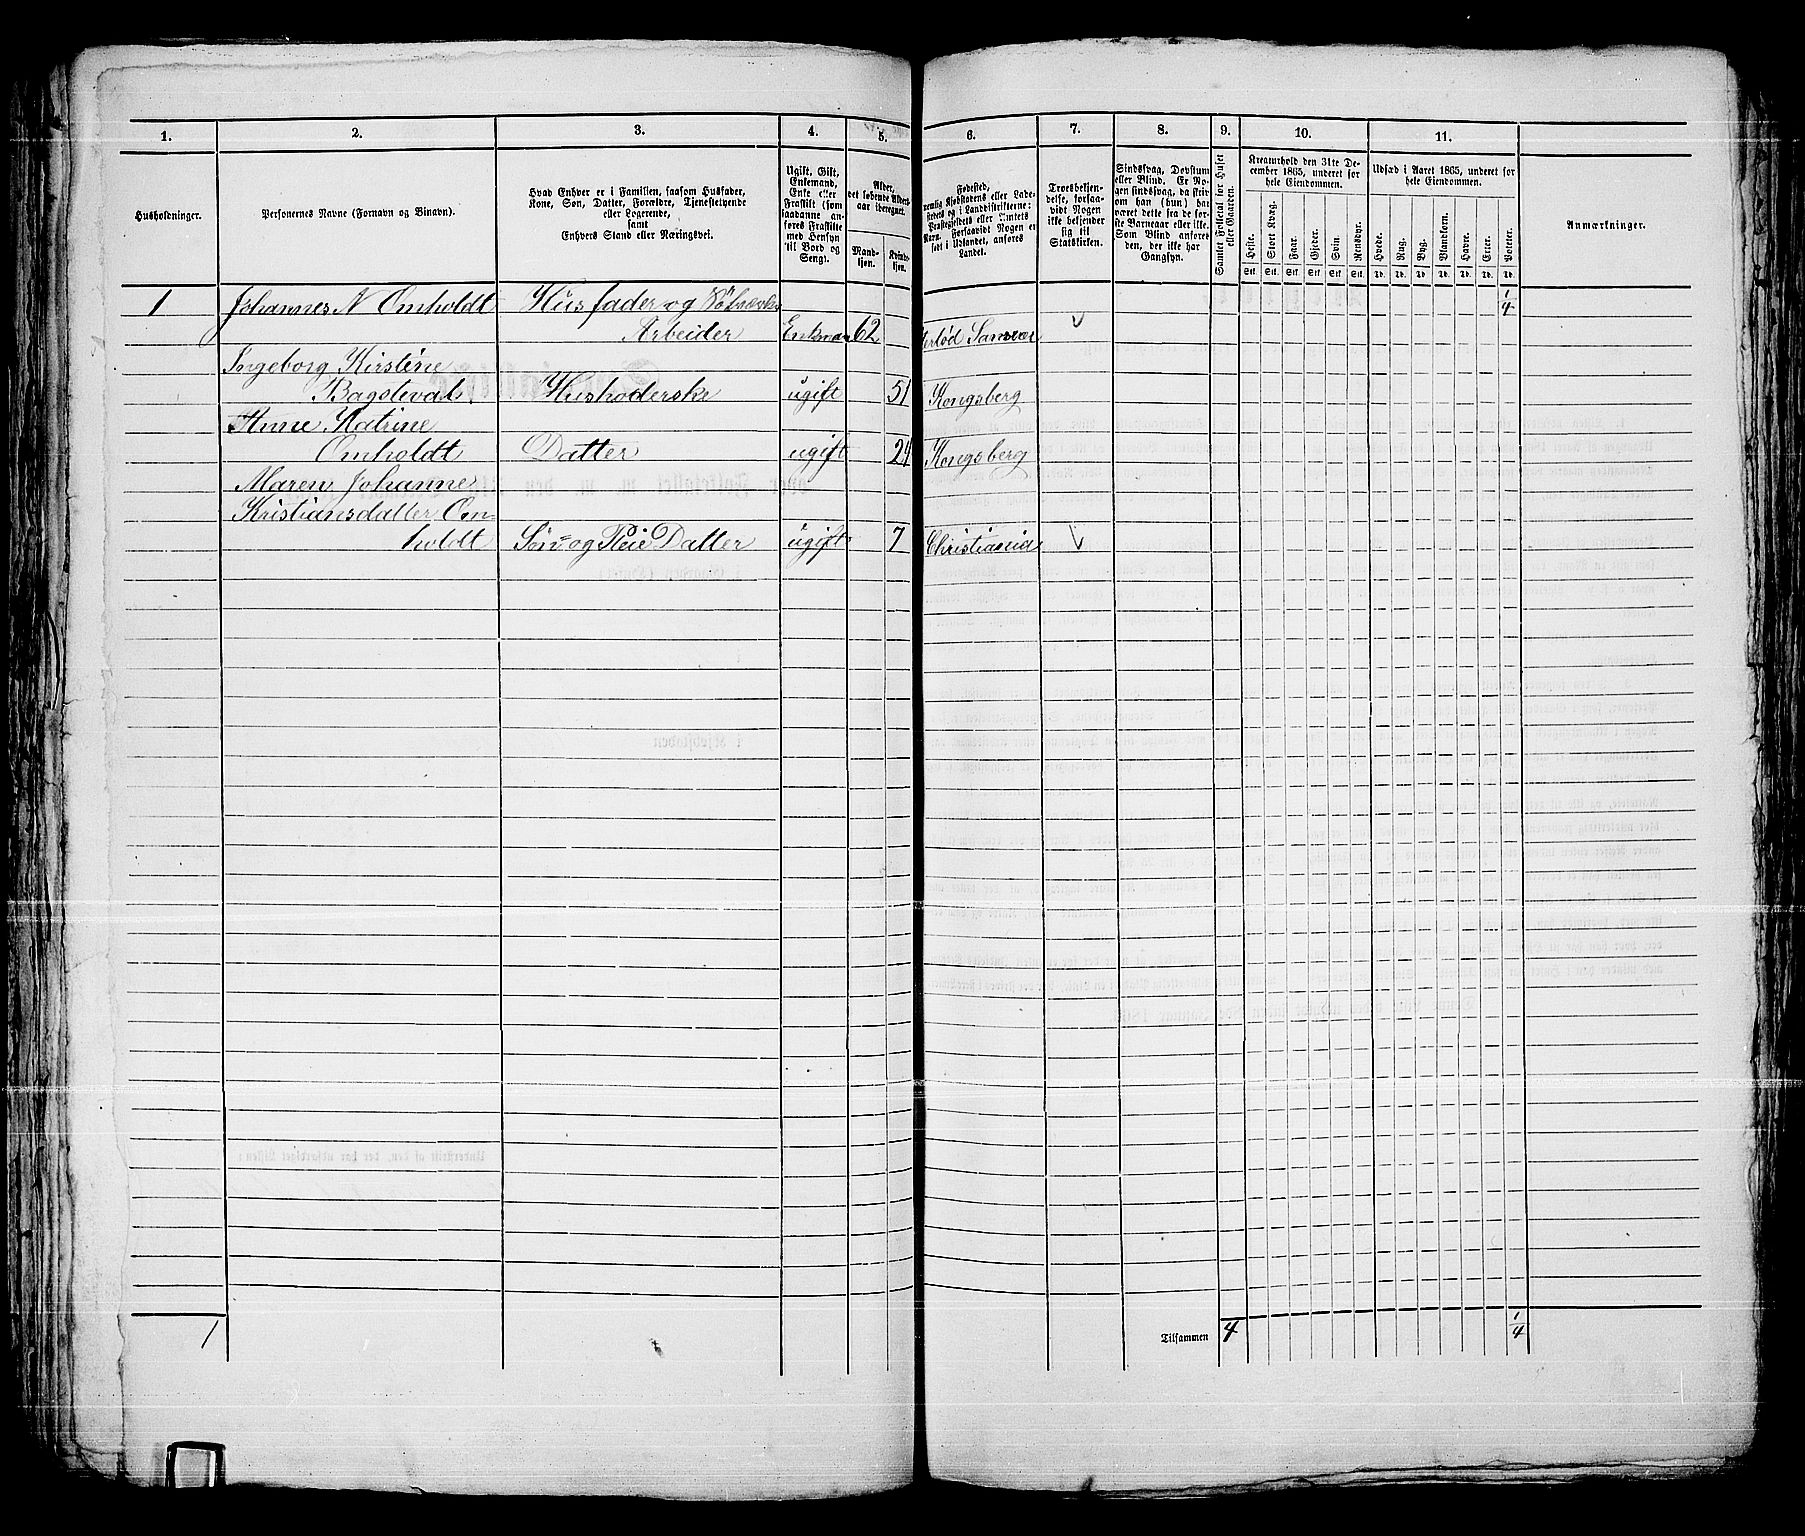 1. 2. 3. 4. 5. 6. 7. 8. 9. 10. 11.
Husholdninger.
Personernes Navne (Fornavn og Binavn).
Hvad Enhver er i Familien, saasom Husfader,
Kone, Søn, Datter, Forældre, Tjenestetyende
eller Logerende,
samt
Enhvers Stand eller Næringsvei.
Ugift, Gift,
Enkemand,
Enke eller
Fraskilt (som
saadanne an-
føres Fraskilte
med Hensyn
til Bord og
Seng).
Alder,
det løbende Alders-
aar iberegnet.
Mand-
kjøn.
Kvinde-
kjøn.
Fødested,
nemlig Kjøbstadens eller Lade-
stedets og i Landdistrikterne:
Præstegjeldets eller Amtets
Navn. Forsaavidt Nogen er
født i Udlandet, anføres
Landet.
Troesbekjen-
delse, forsaa-
vidt Nogen
ikke bekjender
sig til
Statskirken.
Sindssvag, Døvstum
eller Blind. Er No-
gen sindssvag, da skriv
om han (hun) har
været dette fra de før-
ste Barneaar eller ikke.
Som Blind anføres
den, der ikke har
Gangsyn.
Samlet Folketal for Huset
eller Gaarden.
Kreaturhold den 31te De-
cember 1865, underet for
hele Eiendommen.
Heste. Stort Kvæg. Faar. Gjeder. Svin. Rensdyr.
Stk. Stk. Stk. Stk. Stk. Stk.
Udsæd i Aaret 1865, underet for
hele Eiendommen.
Hvede. Rug. Byg. Blandkorn. Havre. Erter. Poteter.
Td. Td. Td. Td. Td. Td. Td.
Anmærkninger.
1 Johannes N Omholdt Husfader og Sølvværks 1/4
Arbeider Enkman 62 Sansvær
Ingeborg Kirstine
Husholderske ugift 51 Kongsberg
Anne Katrine
Omholdt Datter ugift 24 Kongsberg
Maren Johanne
Kristiansdatter Om=
holdt Søn= og Pleie Datter ugift 7 Christiania
1 Tilsammen 4 1/4